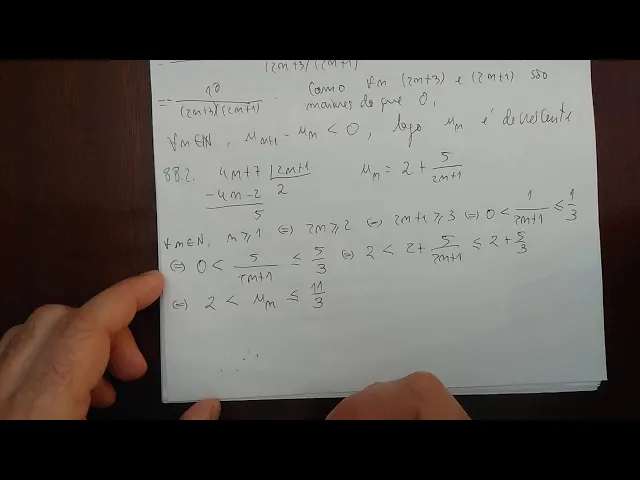 (2n+3)(2n+1)
= - 10/((2n+3)(2n+1)) . Como ∀n (2n+3) e (2n+1) são
maiores do que 0,
∀n∈ℕ, u_{n+1} - u_n < 0, logo u_n é decrescente.
88.2. 4n+7 | 2n+1 u_n = 2 + 5/(2n+1)
-4n-2 2
5
∀n∈ℕ, n ≥ 1 ⇔ 2n ≥ 2 ⇔ 2n+1 ≥ 3 ⇔ 0 < 1/(2n+1) ≤ 1/3
⇔ 0 < 5/(2n+1) ≤ 5/3 ⇔ 2 < 2 + 5/(2n+1) ≤ 2 + 5/3
⇔ 2 < u_n ≤ 11/3